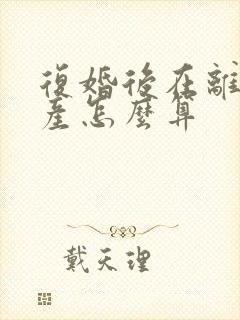 復婚後在離
產怎麼算
戴天理